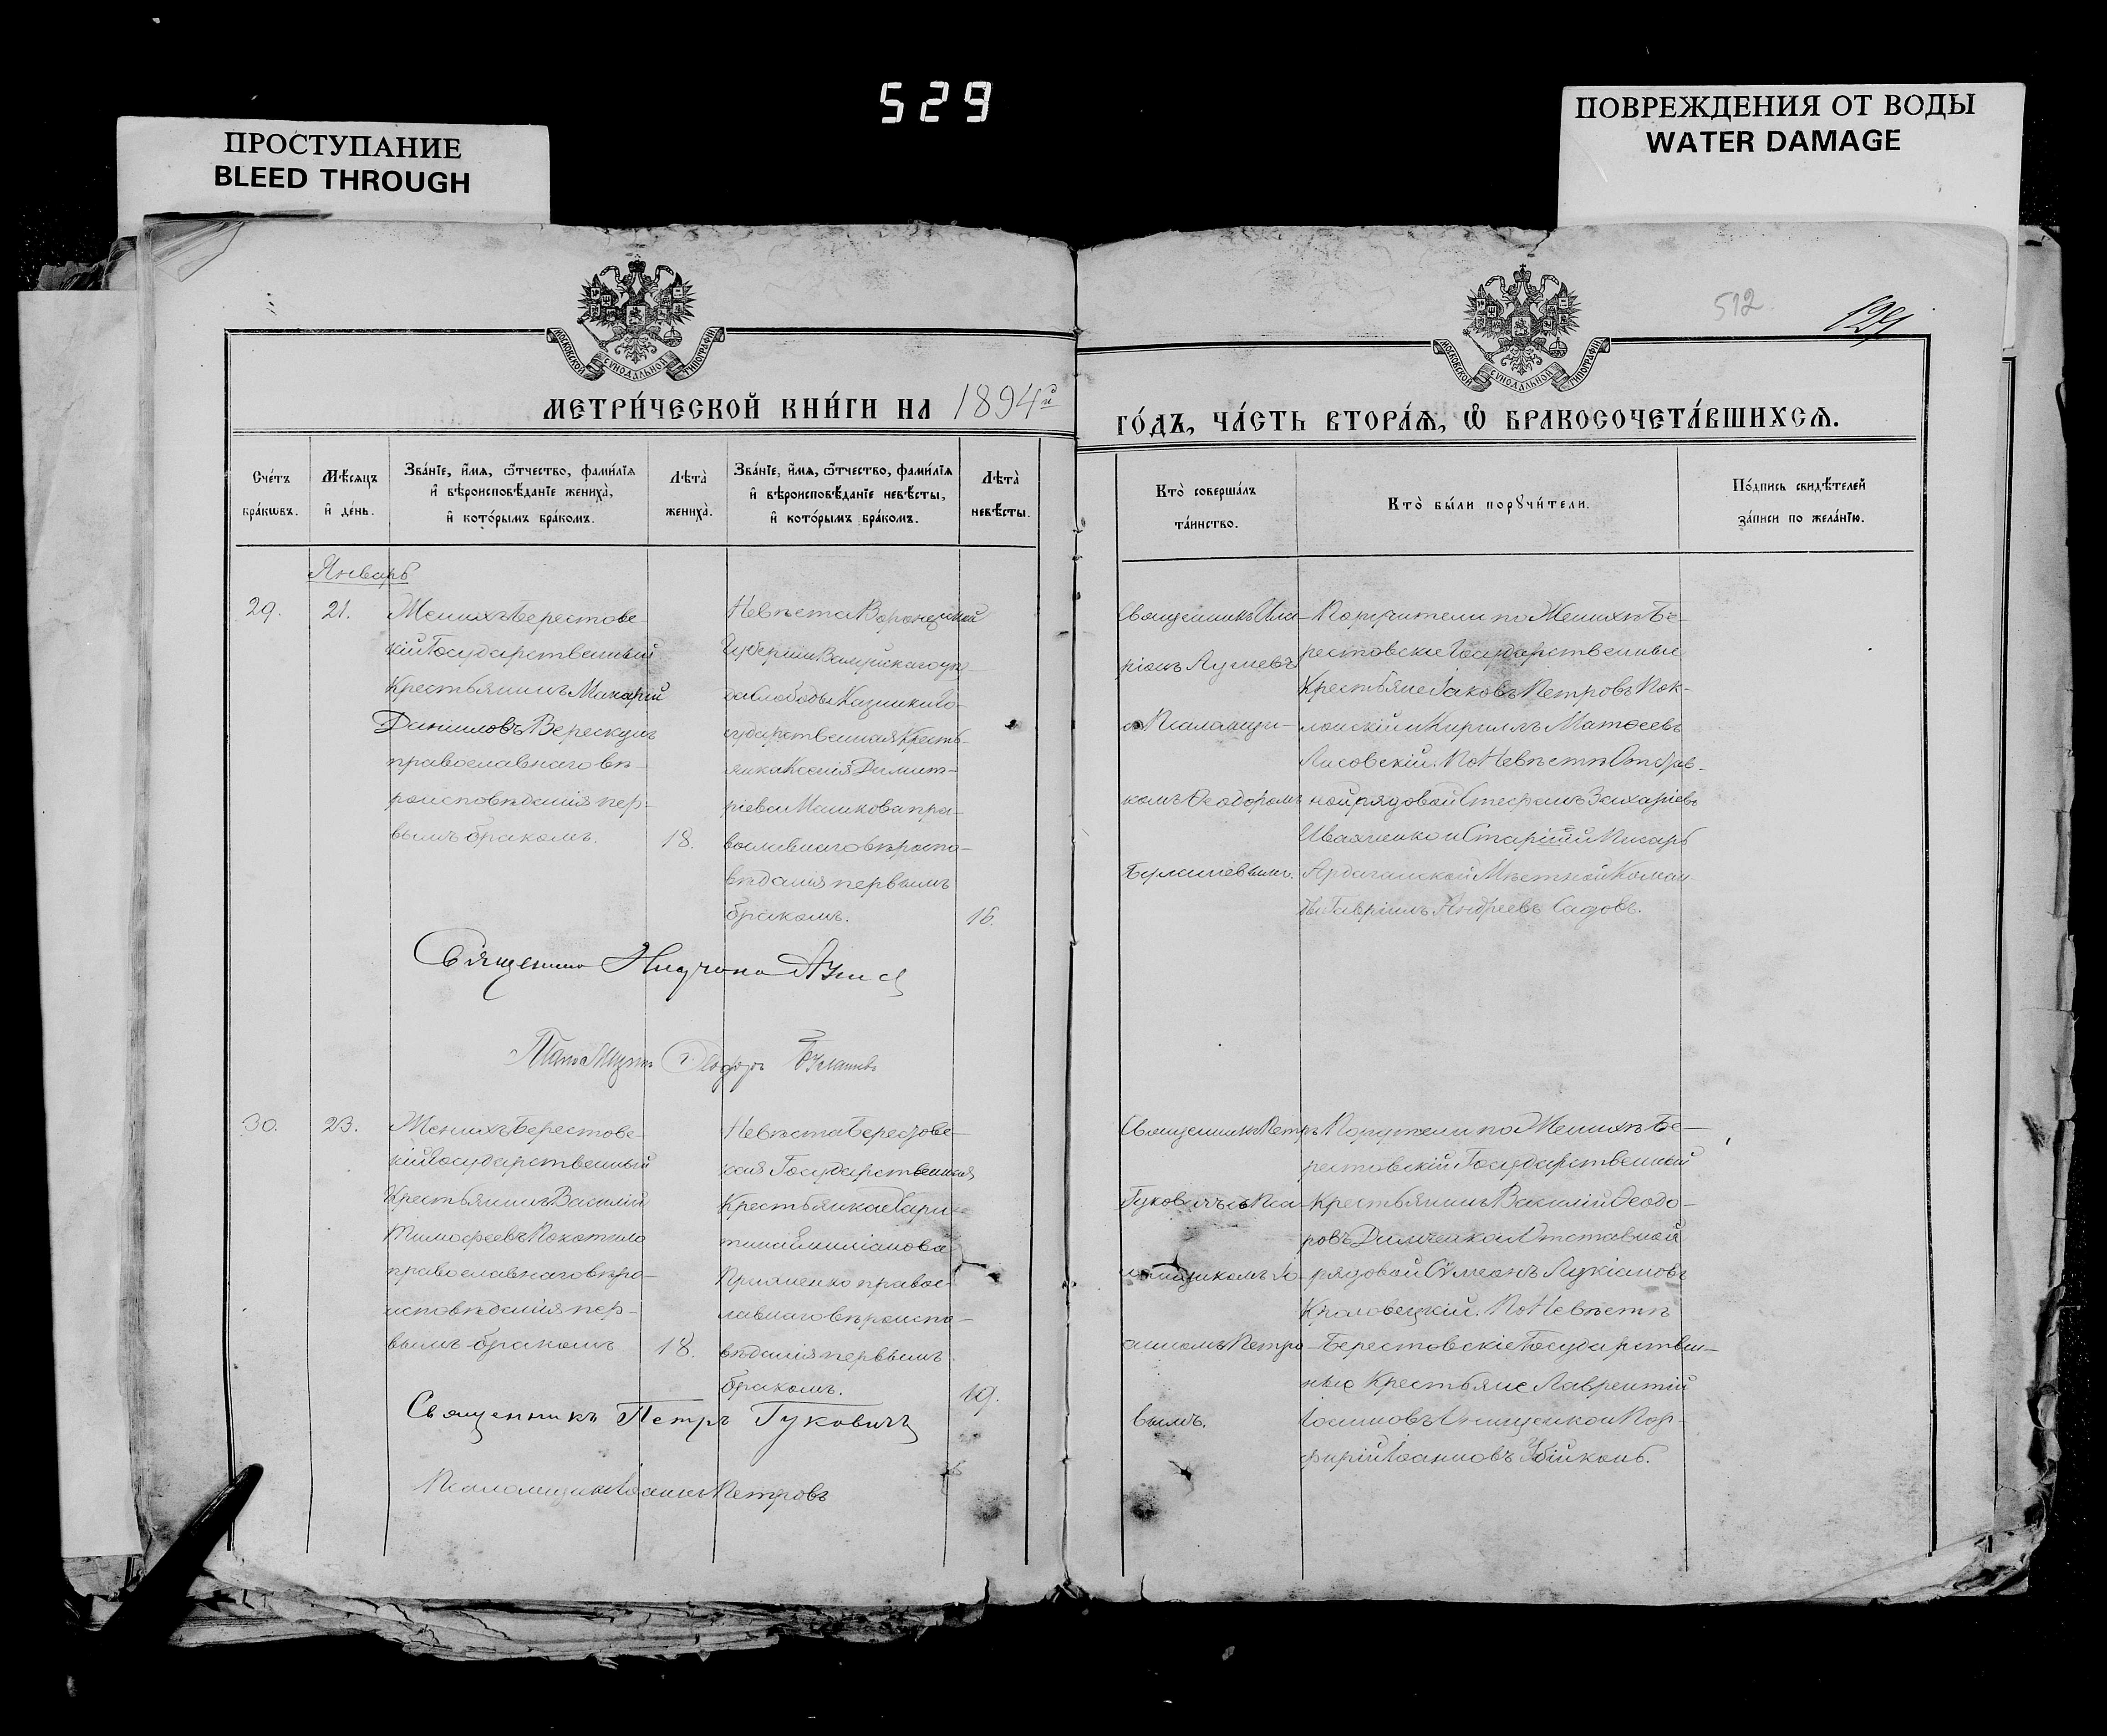 529
ПРОСТУПАНИЕ
BLEED THROUGH
ПОВРЕЖДЕНИЯ ОТ ВОДЫ
WATER DAMAGE
512.
МОСКОВСКОЙ СѴНОДАЛЬНОЙ ТИПОГРАФІИ
МОСКОВСКОЙ СѴНОДАЛЬНОЙ ТИПОГРАФІИ
МЕТРИ́ЧЕСКОЙ КНИ́ГИ НА 1894й
ГО́ДЪ, ЧА́СТЬ ВТОРА́Ѧ, Ѡ БРАКОСОЧЕТА́ВШИХСѦ.
Сче́тъ
бра́кѡвъ.
Мѣ́сяцъ
и҆ де́нь.
Зва́нїе, и҆́мѧ, ѻ҆́тчество, фами́лїѧ
и҆ вѣроисповѣ́данїе жениха̀,
и҆ кото́рымъ бра́комъ.
Лѣта̀
жениха̀.
Зва́нїе, и҆́мѧ, ѻ҆́тчество, фами́лїѧ
и҆ вѣроисповѣ́данїе невѣ́сты,
и҆ кото́рымъ бра́комъ.
Лѣта̀
невѣ́сты.
Кто̀ соверша́лъ
та́инство.
Кто̀ бы́ли порꙋчи́тели.
По́дпись свидѣ́телей
за́писи по жела́нїю.
Январь
29.
21.
Женихъ Берестов-
скій Государственный
Крестьянинъ Макарій
Даниловъ Верескунъ
православнаго вѣ-
роисповѣданія пер-
вымъ бракомъ.
18.
Невѣста Воронежской
Губерніи Валуйскаго уѣ-
да Слободы Казинки Го-
сударственная Кресть-
янка Ксенія Димит-
ріева Машкова пра-
вославнаго вѣроиспо-
вѣданія первымъ
бракомъ.
16.
Священникъ Ила-
ріонъ
съ Псаломщи-
комъ Ѳеодоромъ
Булашевымъ.
Поручители по Женихѣ Бе-
рестовскіе Государственные
Крестьяне Іаковъ Петровъ Пок-
лонскій и Кириллъ Матѳеевъ
Лисовскій. По Невѣстѣ Отстав-
ной рядовой Стефанъ Захаріевъ
Ивахненко и Старшій Писарь
Ардаганской Мѣстной Коман-
ды Гавріилъ Андреевъ Садовъ.
Ѳеодоръ Булашевъ
30.
23.
Женихъ Берестов-
скій Государственный
Крестьянинъ Василій
Тимофеевъ Покотило
православнаго вѣро-
исповѣданія пер-
вымъ бракомъ
18.
Невѣста Берестов-
ская Государственная
Крестьянка Хари-
тина Емиліанова
православ-
лавнаго вѣроиспо-
вѣданія первымъ
бракомъ.
19.
Священникъ Петръ
Гуковичъ съ Пса-
ломщикомъ Іо-
анномъ Петро-
вымъ.
Поручители по Женихѣ Бе-
рестовскій Государственный
Крестьянинъ Василій Ѳеодо-
ровъ Димченко и Отставной
рядовой Сѵмеонъ Лукіановъ
Кроловецкій. По Невѣстѣ
Берестовскіе Государствен-
ные Крестьяне Лаврентій
Іоанновъ Онищенко и Пор-
фирій Іоанновъ Убійконь.
Священникъ Петръ Гуковичъ
Псаломщикъ Іоаннъ Петровъ